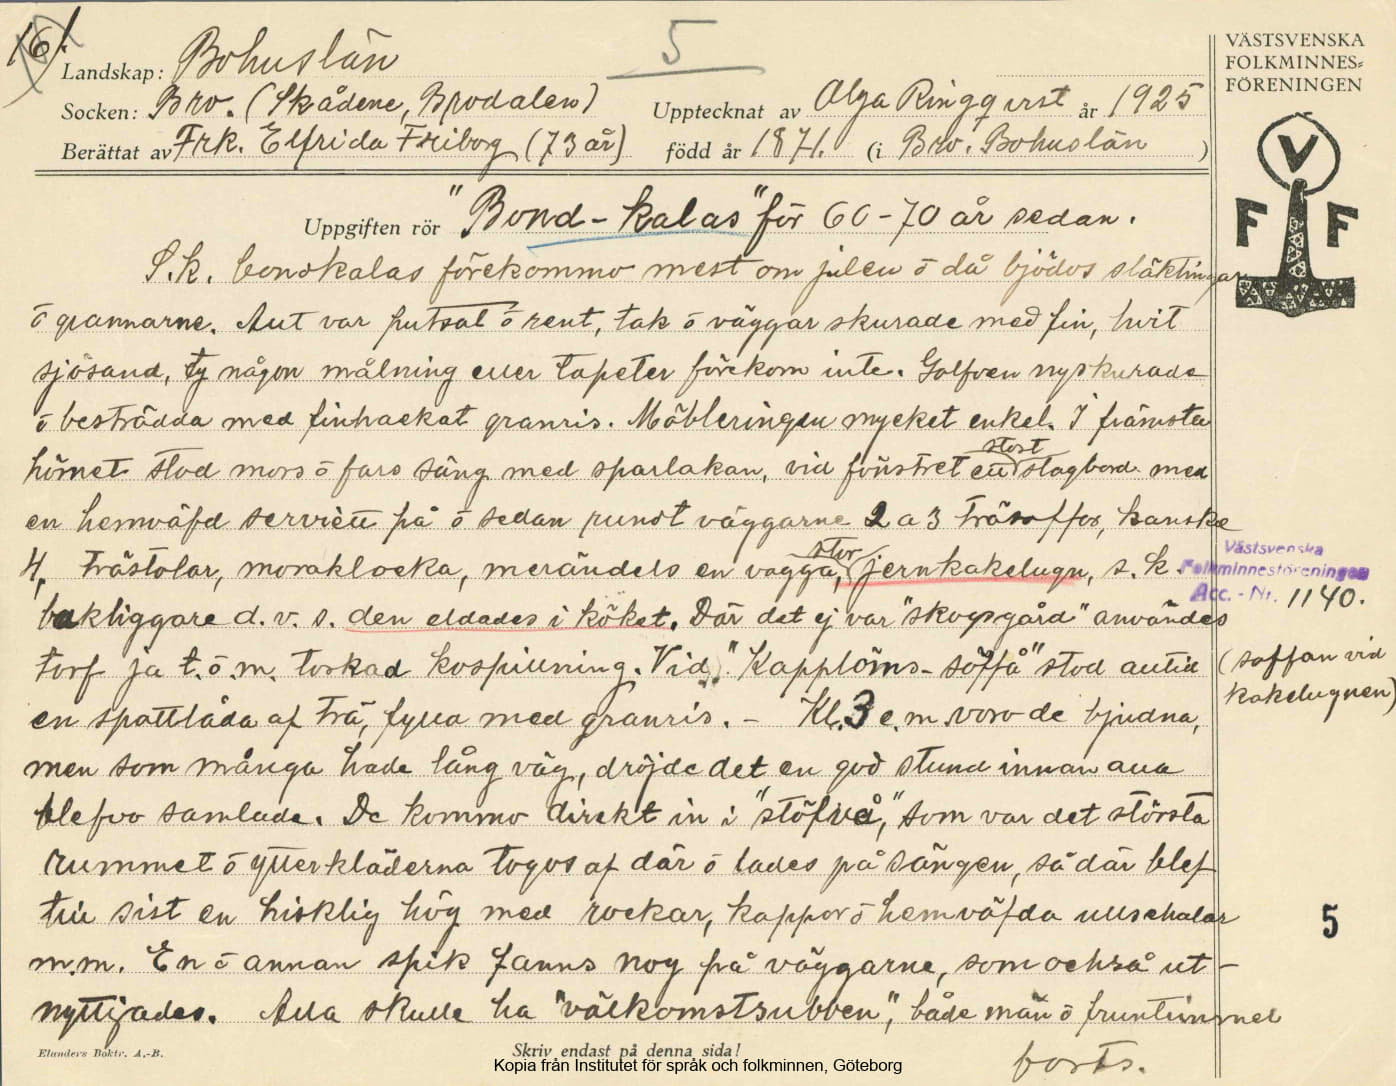 16!
5
Landskap: Bohuslän
VÄSTSVENSKA
FOLKMINNES=
FÖRENINGEN
Socken: Bro. (Skådene, Brodalen) Upptecknat av Olga Ringqvist år 1925
Berättat av Frk. Elfrida Friborg (73 år) född år 1871. (i Bro. Bohuslän )
V
F F
Uppgiften rör "Bond-kalas" för 60-70 år sedan.
S.k. bondkalas förekommo mest om julen ō då bjödos släktingar
ō grannarne. Allt var putsat ō rent, tak ō väggar skurade med fin, hvit
sjösand, ty någon målning eller tapeter förekom inte. Golfven nyskurade
ō beströdda med finhackat granris. Möbleringen mycket enkel. I främsta
hörnet stod mors ō fars säng med sparlakan, vid fönstret ett stort slagbord med
en hemväfd serviett på ō sedan rundt väggarne 2 a 3 träsoffor, kanske
4, trästolar, moraklocka, merändels en vagga, stor jernkakelugn, s.k.
Västsvenska
Folkminnesföreningen
Acc. - Nr. 1140.
bakliggare d.v.s. den eldades i köket. Där det ej var "skogsgård" användes
torf ja t.ō.m. torkad kospillning. Vid "Kapplöms-söffå" stod alltid
(soffan vid
kakelugnen)
en spottlåda af trä, fylla med granris. - Kl. 3 e.m. voro de bjudna,
men som många hade lång väg, dröjde det en god stund innan alla
blefvo samlade. De kommo direkt in i "stöfvå," som var det största
rummet ō ytterkläderna togos af där ō lades på sängen, så där blef
till sist en hisklig hög med rockar, kappor ō hemväfda ullschalar
5
m.m. En ō annan spik fanns nog på väggarne, som också ut-
nyttjades. Alla skulle ha "välkomstsubben", både män ō fruntimmer
forts.
Elanders Boktr. A.-B.
Skriv endast på denna sida!
Kopia från Institutet för språk och folkminnen, Göteborg